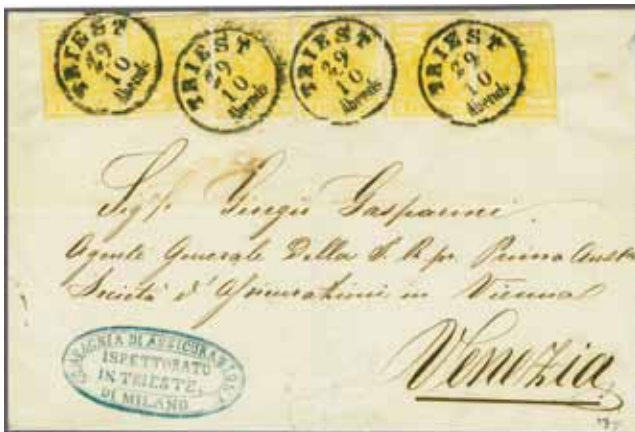 TRIEST 29 10 Abends
TRIEST 29 10 Abends
TRIEST 29 10 Abends
TRIEST 29 10 Abends
Sigr. Giorgio Gasparini
Agente Generale Della I. R. pr. Prima Austr
Società d'Assicurazioni in Vienna
Venezia
COMPAGNIA DI ASSICURAZIONI
ISPETTORATO
IN TRIESTE,
DI MILANO